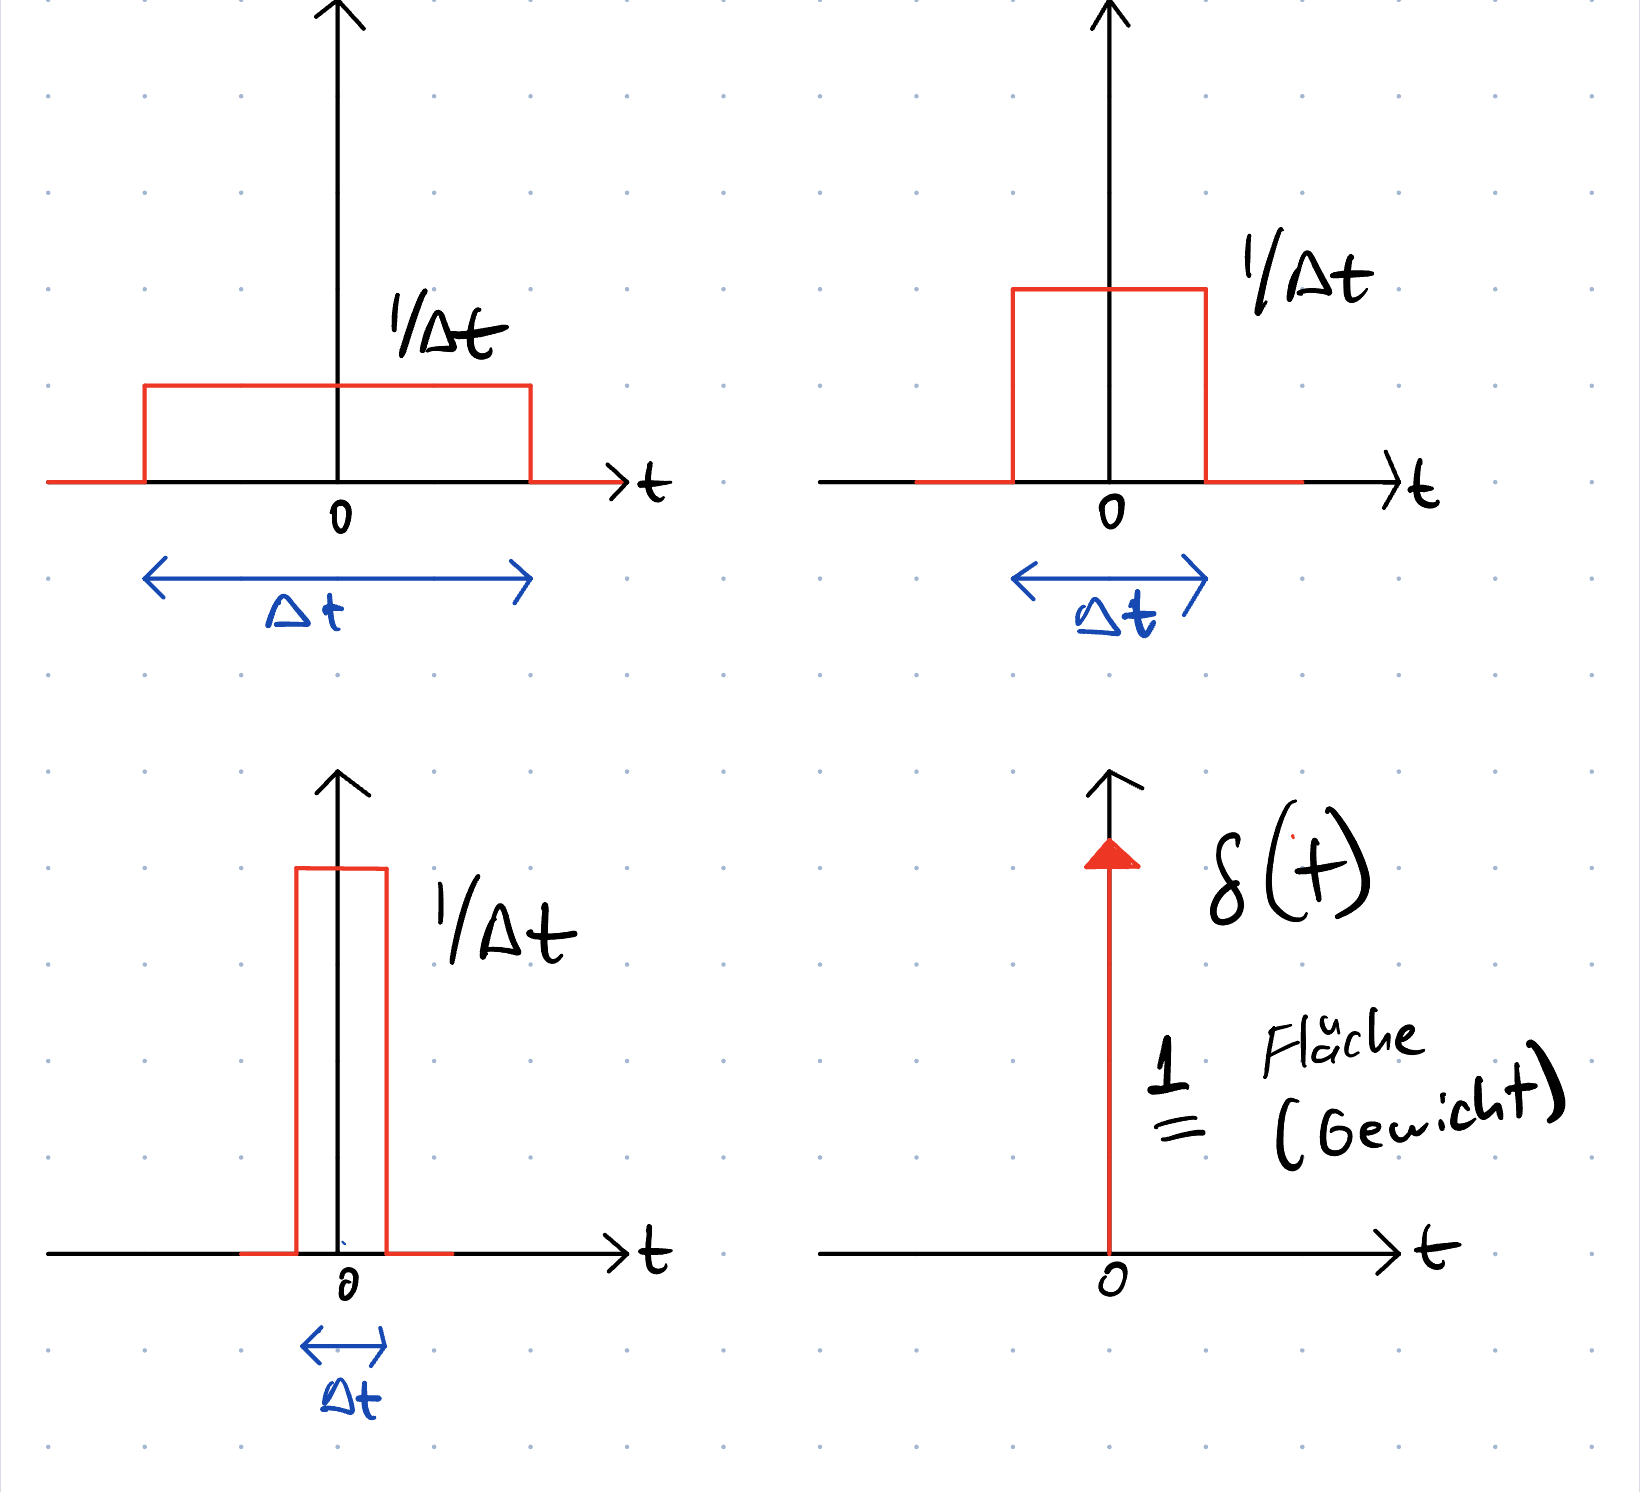 1/Δt
t
0
Δt
1/Δt
t
0
Δt
1/Δt
t
0
Δt
δ(t)
1 Fläche
(Gewicht)
t
0